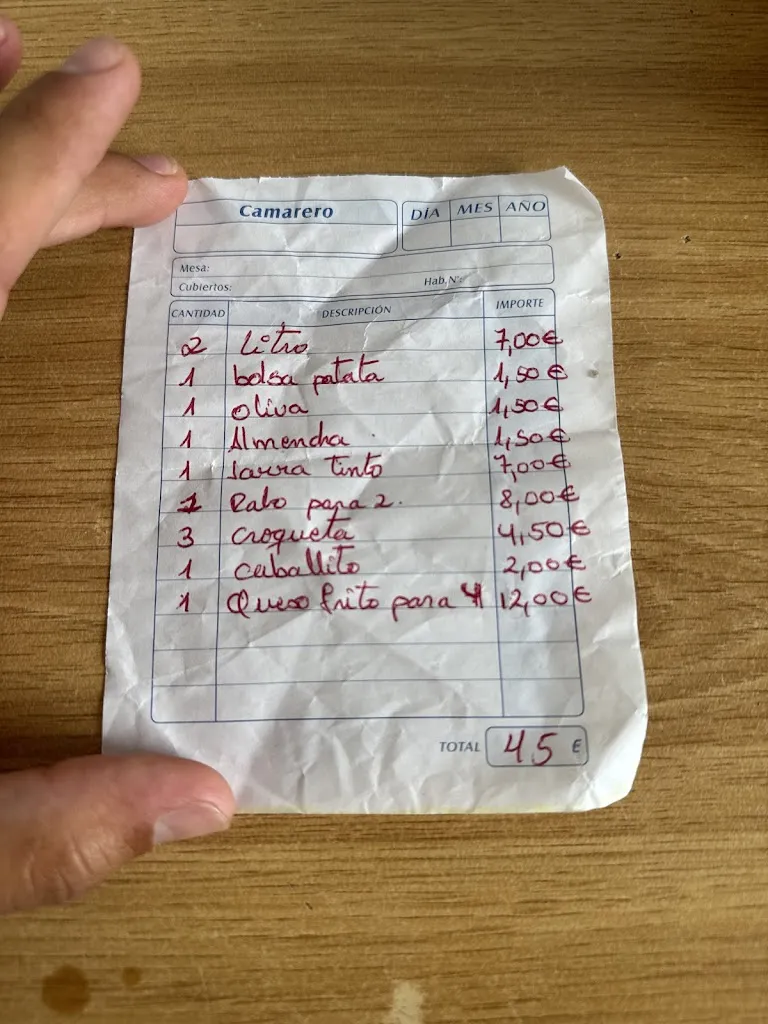 Camarero
DÍA MES AÑO
Mesa:
Cubiertos: Hab. Nº:
CANTIDAD DESCRIPCIÓN IMPORTE
2 Litro 7,00€
1 bolsa patata 1,50€
1 oliva 1,50€
1 Almencha 1,50€
1 Jarra Tinto 7,00€
1 Rabo para 2. 8,00€
3 croqueta 4,50€
1 caballito 2,00€
1 Queso frito para 4 12,00€
TOTAL 45 €